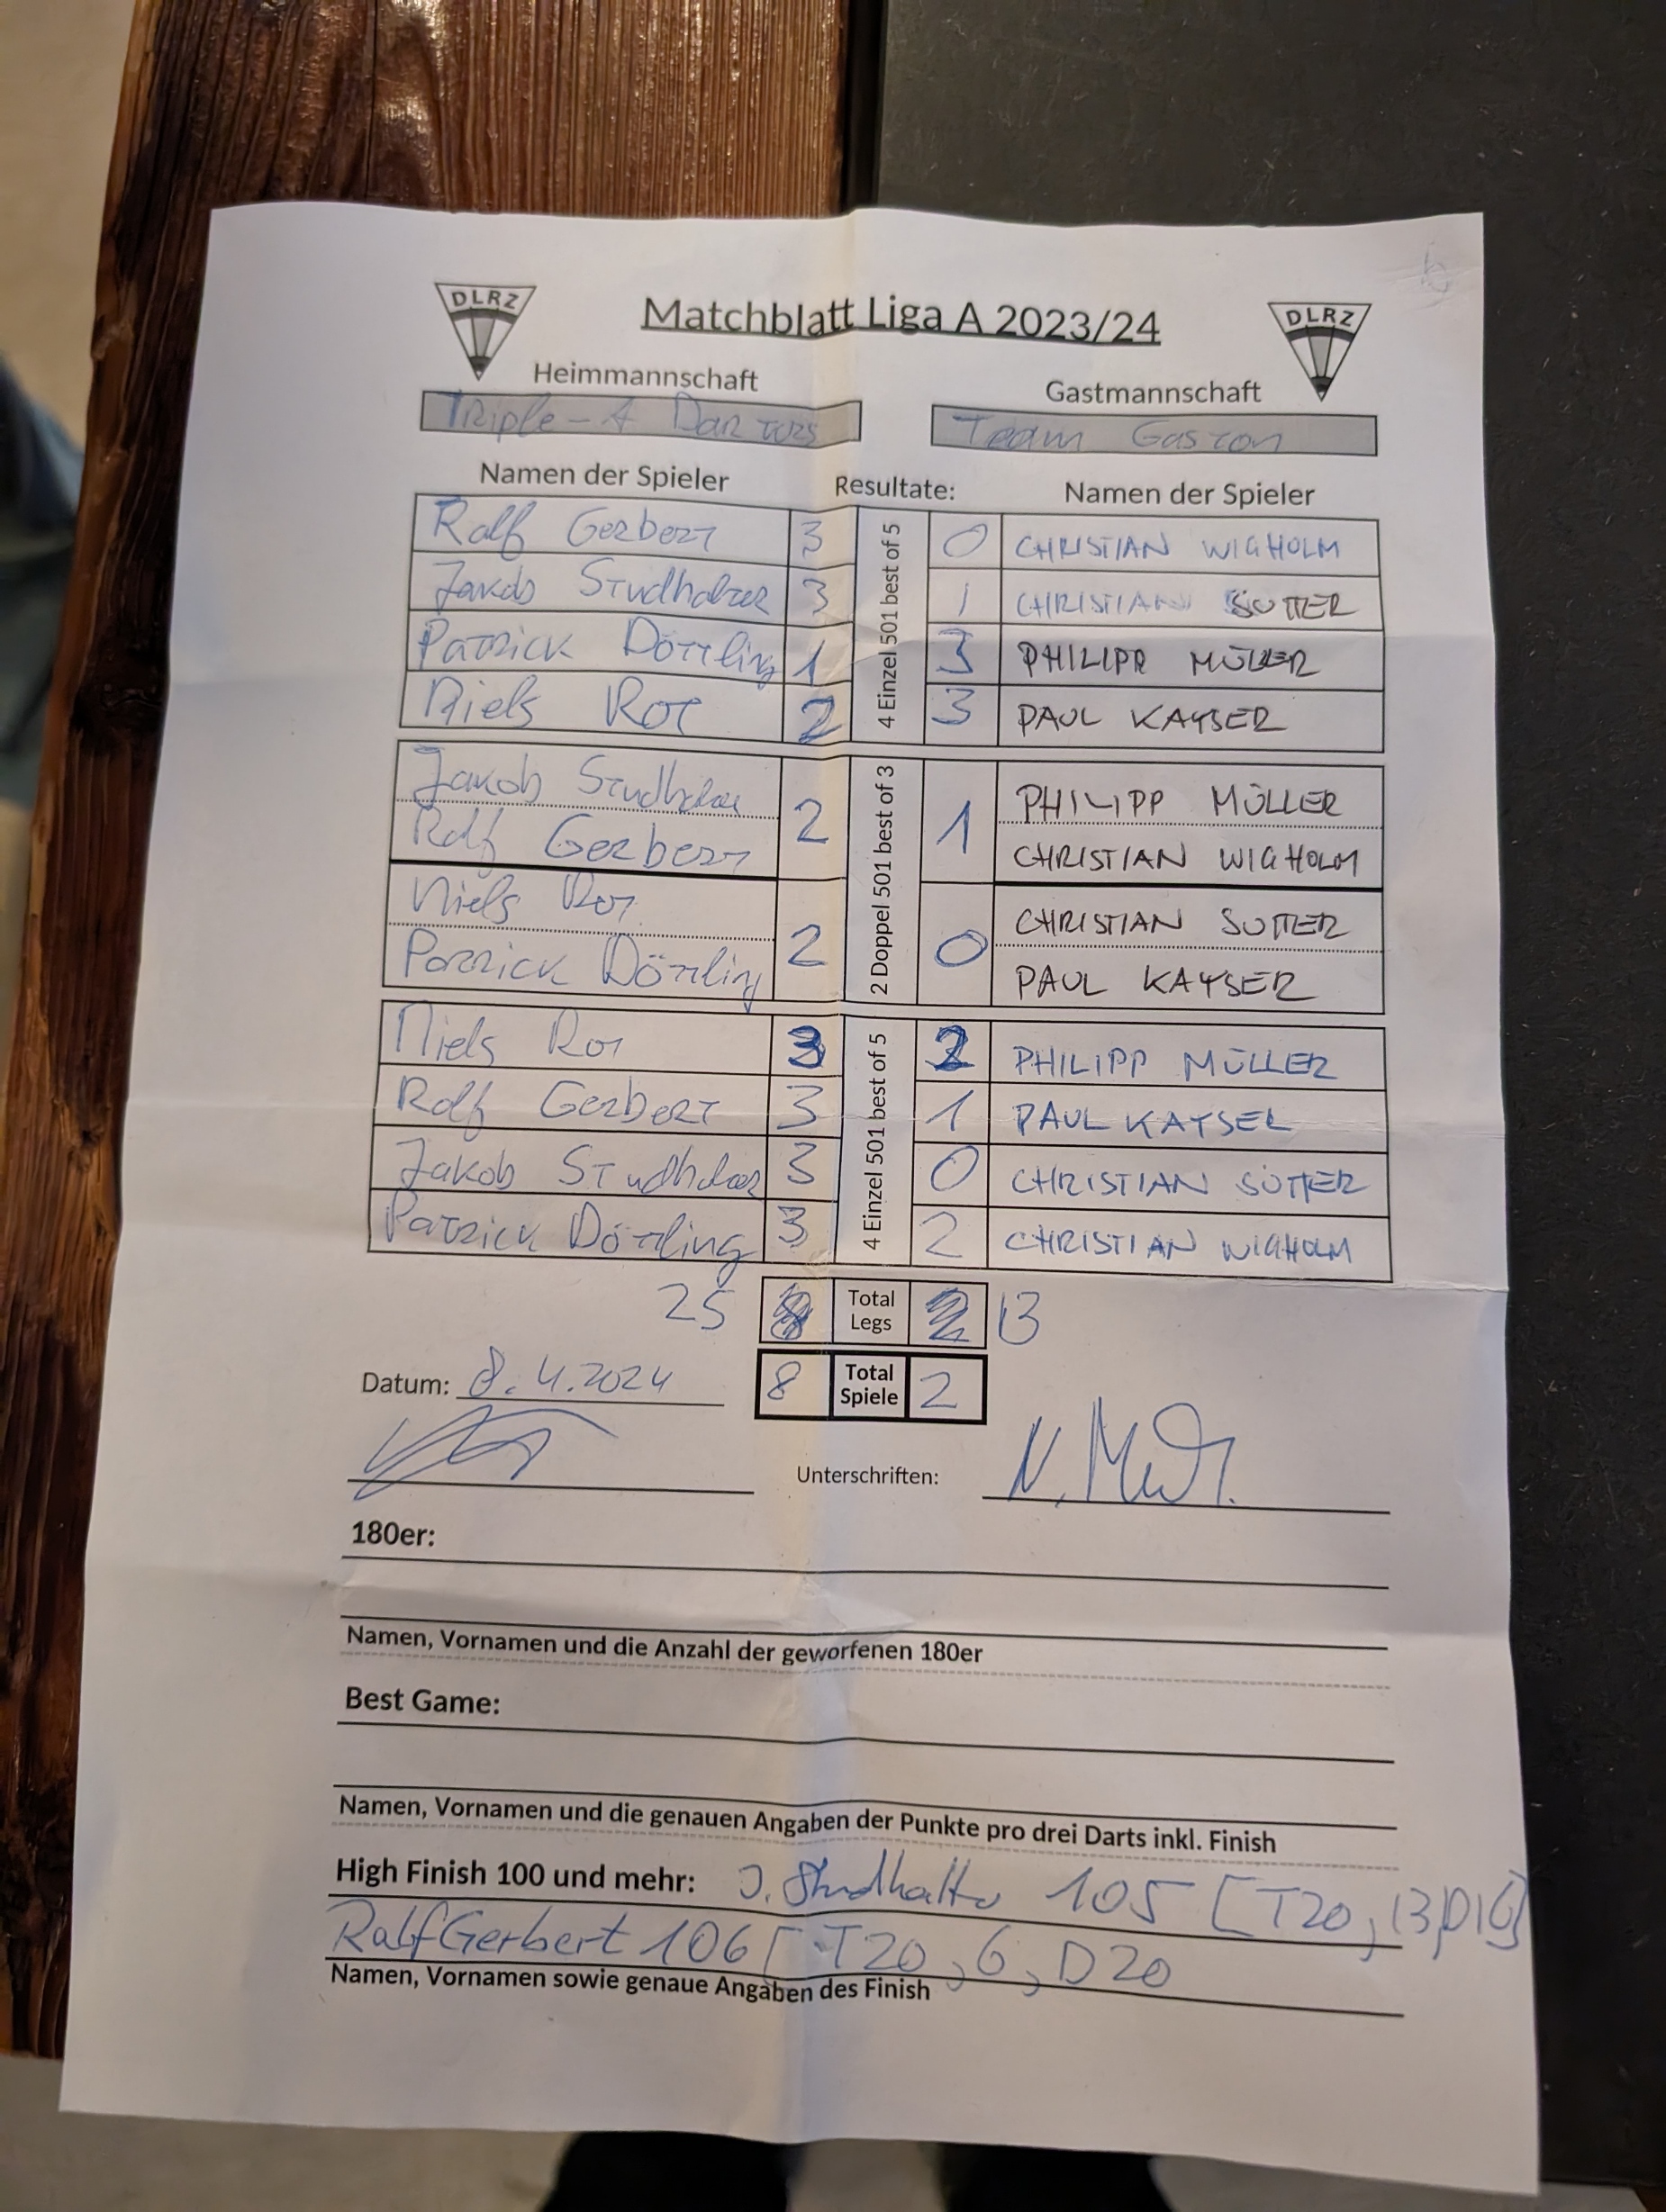 DLRZ Matchblatt Liga A 2023/24 DLRZ
Heimmannschaft Gastmannschaft
Triple-A Darters Team Gaston
Namen der Spieler Resultate: Namen der Spieler
4 Einzel 501 best of 5
Ralf Gerbert 3 0 CHRISTIAN WIGHOLM
Jakob Studhalter 3 1 CHRISTIAN SUTTER
Patrick Dörrling 1 3 PHILIPP MÜLLER
Niels Rot 2 3 PAUL KAYSER
2 Doppel 501 best of 3
Jakob Studhalter 2 1 PHILIPP MÜLLER
Ralf Gerbert CHRISTIAN WIGHOLM
Niels Rot 2 0 CHRISTIAN SUTTER
Patrick Dörrling PAUL KAYSER
4 Einzel 501 best of 5
Niels Rot 3 2 PHILIPP MÜLLER
Ralf Gerbert 3 1 PAUL KAYSER
Jakob Studhalter 3 0 CHRISTIAN SUTTER
Patrick Dörrling 3 2 CHRISTIAN WIGHOLM
25 Total Legs 13
Datum: 8.4.2024 8 Total Spiele 2
Unterschriften:
180er:
Namen, Vornamen und die Anzahl der geworfenen 180er
Best Game:
Namen, Vornamen und die genauen Angaben der Punkte pro drei Darts inkl. Finish
High Finish 100 und mehr: J. Studhalter 105 [T20, 13, D16]
Ralf Gerbert 106 [T20, 6, D20
Namen, Vornamen sowie genaue Angaben des Finish